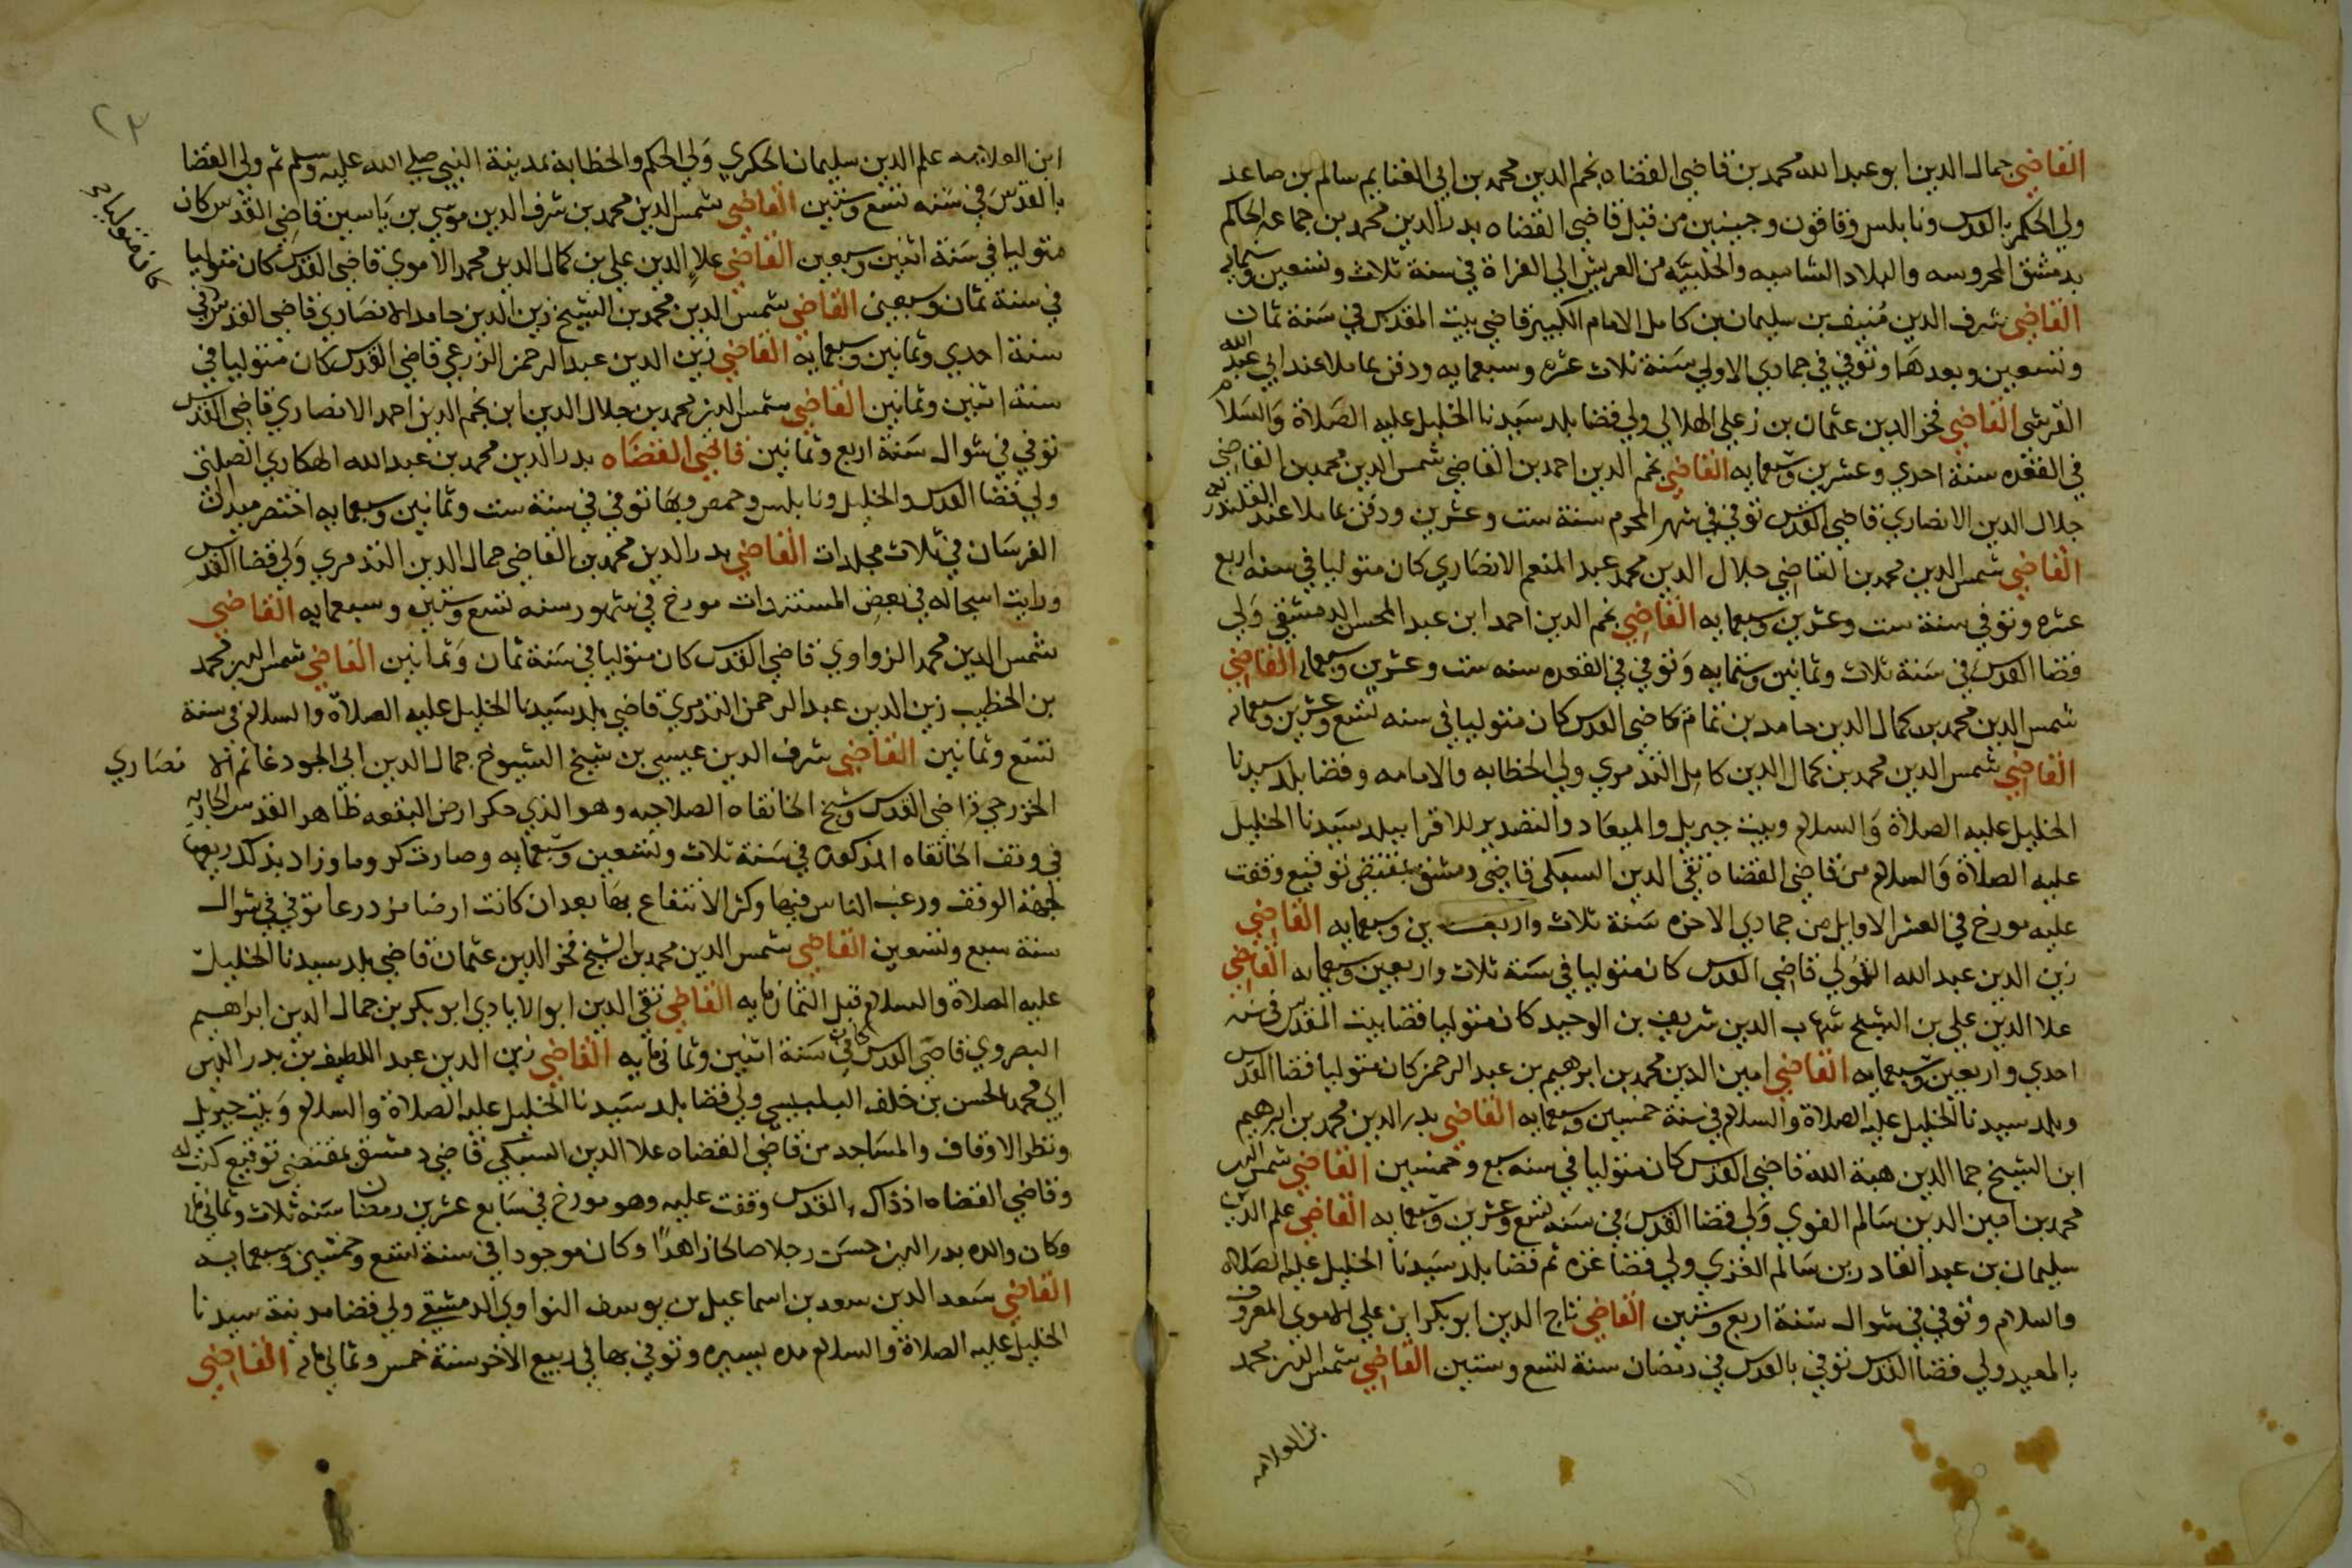 القاضي جمال الدين ابو عبد الله محمد بن قاضي القضاه نجم الدين محمد بن ابي الغنايم سالم بن صاعد
ولي الحكم بالقدس ونابلس وقاقون وجينين من قبل قاضي القضاه بدر الدين محمد بن جماعه الحاكم
بدمشق المحروسه والبلاد الشاميه والحلبيه من العريش الي الفراة في سنة ثلاث وتسعين وستمايه
القاضي شرف الدين منيف بن سليمان بن كامل الامام الكبير قاضي بيت المقدس في سنة ثمان
وتسعين وبعدها وتوفي في جمادي الاولي سنة ثلاث عشره وسبعمايه ودفن بماملا عند ابي عبد الله
القرشي القاضي فخر الدين عثمان بن زعلي الهلالي ولي قضا بلد سيدنا الخليل عليه الصلاة والسلام
في القعده سنة احدي وعشرين وسبعمايه القاضي نجم الدين احمد بن القاضي شمس الدين محمد بن القاضي
جلال الدين الانصاري قاضي القدس توفي في شهر المحرم سنة ست وعشرين ودفن بماملا عند القلندريه
القاضي شمس الدين محمد بن القاضي جلال الدين محمد عبد المنعم الانصاري كان متوليا في سنه اربع
عشره وتوفي سنة ست وعشرين وسبعمايه القاضي نجم الدين احمد ابن عبد المحسن الدمشقي ولي
قضا القدس في سنة ثلاث وثمانين وستمايه وتوفي في القعده سنه ست وعشرين وسبعمايه القاضي
شمس الدين محمد بن كمال الدين حامد بن تمام قاضي القدس كان متوليا في سنه تسع وعشرين وسبعمايه
القاضي شمس الدين محمد بن كمال الدين كامل التدمري ولي الخطابه والامامه وقضا بلد سيدنا
الخليل عليه الصلاة والسلام وبيت جبريل والميعاد والتصدير للاقرا ببلد سيدنا الخليل
عليه الصلاة والسلام من قاضي القضاة تقي الدين السبكي قاضي دمشق بمقتضى توقيع وقفت
عليه مورخ في العشر الاوايل من جمادي الاخره سنة ثلاث واربعين وسبعمايه القاضي
زين الدين عبد الله القمولي قاضي القدس كان متوليا في سنة ثلاث واربعين وسبعمايه القاضي
علا الدين علي بن الشيخ شهاب الدين شريف بن الوحيد كان متوليا قضا بيت المقدس في سنه
احدي واربعين وسبعمايه القاضي امين الدين محمد بن ابرهيم بن عبد الرحمن كان متوليا قضا القدس
وبلد سيدنا الخليل عليه الصلاة والسلام في سنة خمسين وسبعمايه القاضي بدر الدين محمد بن ابرهيم
ابن الشيخ جما الدين هبة الله قاضي القدس كان متوليا في سنه سبع وخمسين القاضي شمس الدين
محمد بن امين الدين سالم الغوي ولي قضا القدس في سنه تسع وعشرين وسبعمايه القاضي علم الدين
سليمان بن عبد القادر بن سالم الغزي ولي قضا غزه ثم قضا بلد سيدنا الخليل عليه الصلاه
والسلام وتوفي في شوال سنة اربع وستين القاضي تاج الدين ابو بكر ابن علي الاموي المعروف
بالمعيد ولي قضا القدس توفي بالقدس في رمضان سنة تسع وستين القاضي شمس الدين محمد
بن العلامه
٢٣
ابن العلامه علم الدين سليمان الحكري ولي الحكم والخطابة بمدينة النبي صلي الله عليه وسلم ثم ولي القضا
بالقدس في سنه تسع وستين القاضي شمس الدين محمد بن شرف الدين موسي بن ياسين قاضي القدس كان
متوليا في سنة اثنين وسبعين القاضي علا الدين علي بن كمال الدين محمد الاموي قاضي القدس كان متوليا
كان متوليا
في سنة ثمان وسبعين القاضي شمس الدين محمد بن الشيخ زين الدين حامد الانصاري قاضي القدس في
سنة احدي وثمانين وسبعمايه القاضي زين الدين عبد الرحمن الزرعي قاضي القدس كان متوليا في
سنة اثنين وثمانين القاضي شمس الدين محمد بن جلال الدين ابن نجم الدين احمد الانصاري قاضي القدس
توفي في شوال سنة اربع وثمانين قاضي القضاه بدر الدين محمد بن عبد الله الهكاري الصلتي
ولي قضا القدس والخليل ونابلس وحمص وبها توفي في سنة ست وثمانين وسبعمايه اختصر ميدان
الفرسان في ثلاث مجلدات القاضي بدر الدين محمد بن القاضي جمال الدين التدمري ولي قضا القدس
ورايت اسجاله في بعض المستندات مورخ في شهور سنه تسع وستين وسبعمايه القاضي
شمس الدين محمد الزواوي قاضي القدس كان متوليا في سنة ثمان وثمانين القاضي شمس الدين محمد
بن الخطيب زين الدين عبد الرحمن التدمري قاضي بلد سيدنا الخليل عليه الصلاة والسلام في سنة
تسع وثمانين القاضي شرف الدين عيسي بن شيخ الشيوخ جمال الدين ابي الجود غانم الانصاري
الخزرجي قاضي القدس وشيخ الخانقاه الصلاحيه وهو الذي حكر ارض البقعه ظاهر القدس الجاريه
في وقف الخانقاه المذكوره في سنة ثلاث وتسعين وسبعمايه وصارت كروما وزاد بذلك ريعها
لجهة الوقف ورغب الناس فيها وكثر الانتفاع بها بعد ان كانت ارضا مزدرعا توفي في شوال
سنة سبع وتسعين القاضي شمس الدين محمد بن الشيخ فخر الدين عثمان قاضي بلد سيدنا الخليل
عليه الصلاة والسلام قبل الثمانمايه القاضي تقي الدين ابو الايادي ابو بكر بن جمال الدين ابراهيم
البصروي قاضي القدس كان في سنة اثنين وثمانمايه القاضي زين الدين عبد اللطيف بن بدر الدين
ابي محمد الحسن بن خلف البلبيسي ولي قضا بلد سيدنا الخليل عليه الصلاة والسلام وبيت جبريل
ونظر الاوقاف والمساجد من قاضي القضاه علا الدين السبكي قاضي دمشق بمقتضي توقيع كتب له
وقاضي القضاه اذ ذاك بالقدس وقفت عليه وهو مورخ في سابع عشرين رمضان سنه ثلاث وثمانمايه
وكان والده بدر الدين حسن رجلا صالحا زاهدا وكان موجودا في سنة تسع وخمسين وسبعمايه
القاضي سعد الدين سعد بن اسماعيل بن يوسف النواوي الدمشقي ولي قضا مدينة سيدنا
الخليل عليه الصلاة والسلام مده يسيره وتوفي بها في ربيع الاخر سنة خمس وثمانمايه القاضي